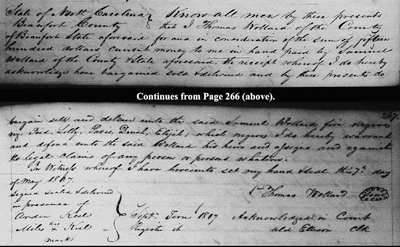 State of North Carolina } Know all men by these presents
Beaufort County } that I Thomas Wollard of the County
of Beaufort State aforesaid for and in consideration of the sum of fifteen
hundred dollars current money to me in hand paid by Samuel
Wollard of the County & State aforesaid, the receipt whereof I do hereby
acknowledge have bargained sold & delivered and by these presents do
Continues from Page 266 (above).
267.
bargain sell and deliver unto the said Samuel Wollard five negroes
Said, Lilly, which negroes I do hereby warrant
and defend unto the said Wollard his heirs and assigns and against
the legal claims of any person or persons whatever.
In Witness whereof I have hereunto set my hand & seal this day
of May
Signed Sealed & delivered Thomas Wollard Seal
in presence of
Keel
his Sept. Term Acknowledged in Court
Keel Clk
mark